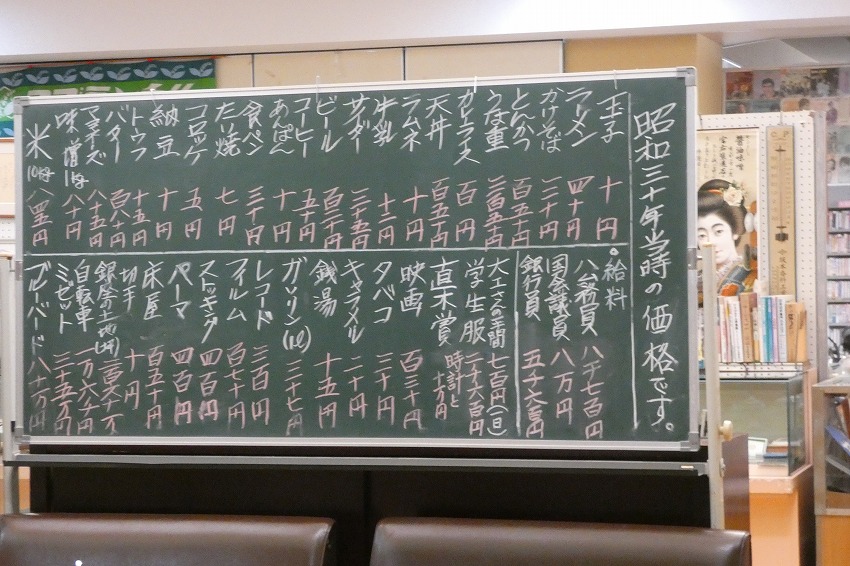 昭和三十年当時の価格です。
玉子 十円
ラーメン 四十円
かけそば 三十円
とんかつ 百五十円
うな重 二百五十円
カレーライス 百円
天丼 百五十円
ラムネ 十円
牛乳 十二円
サイダー 三十円
ビール 百二十円
コーヒー 五十円
あんぱん 十円
食パン 三十円
たい焼 七円
コロッケ 五円
納豆 十円
トウフ 十五円
バター 百八十円
マヨネーズ 八十五円
味噌1kg 八十円
米10kg 八四五円
。給料
公務員 八千七百円
国会議員 八万円
銀行員 五千六百円
大工さんの手間 七百円(一日)
学生服 二千六百円
直木賞 時計と十万円
映画 百三十円
タバコ 三十円
キャラメル 二十円
銭湯 十五円
ガソリン(1ℓ) 三十七円
レコード 三百円
フィルム 百七十円
ストッキング 四百円
パーマ 四百円
床屋 百五十円
切手 十円
銀座土地(坪)
自転車 一万六千円
ミゼット 三十五万円
ブルーバード 八十万円